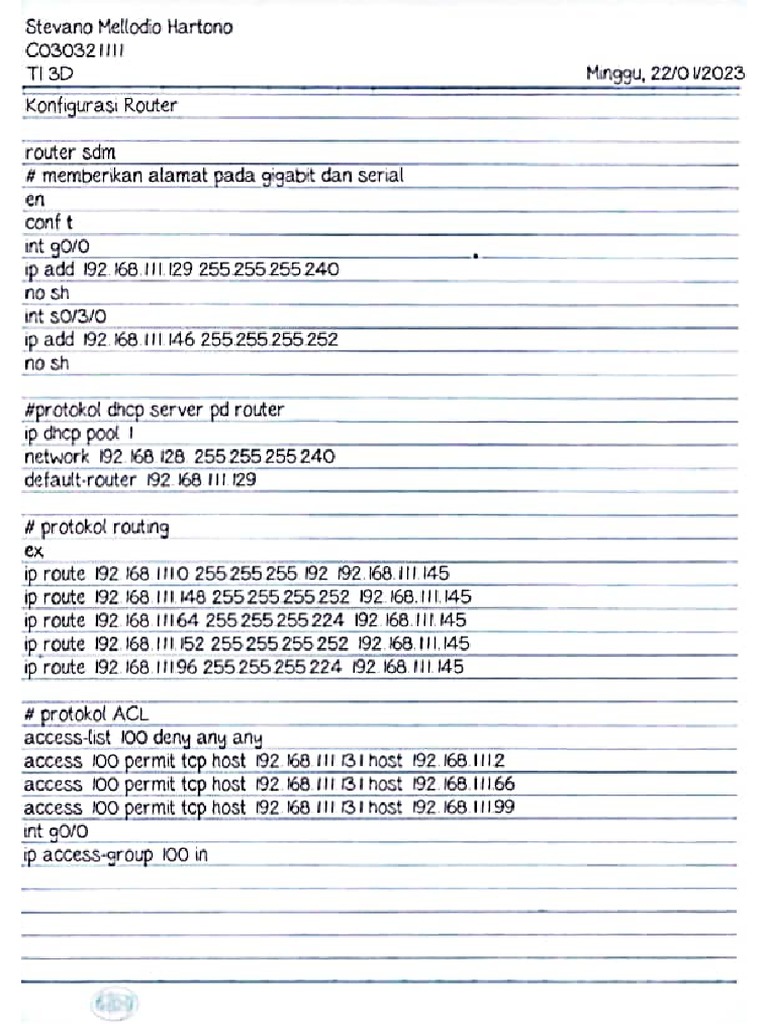 Stevano Mellodio Hartono
C030321111
TI 3D
Minggu, 22/01/2023
Konfigurasi Router
router sdm
# memberikan alamat pada gigabit dan serial
en
conf t
int g0/0
ip add 192.168.111.129 255.255.255.240
no sh
int s0/3/0
ip add 192.168.111.146 255.255.255.252
no sh
#protokol dhcp server pd router
ip dhcp pool 1
network 192.168.128 255.255.255.240
default-router 192.168.111.129
# protokol routing
ex
ip route 192.168.111.0 255.255.255.192 192.168.111.145
ip route 192.168.111.148 255.255.255.252 192.168.111.145
ip route 192.168.111.64 255.255.255.224 192.168.111.145
ip route 192.168.111.152 255.255.255.252 192.168.111.145
ip route 192.168.111.96 255.255.255.224 192.168.111.145
# protokol ACL
access-list 100 deny any any
access 100 permit tcp host 192.168.111.131 host 192.168.111.2
access 100 permit tcp host 192.168.111.131 host 192.168.111.66
access 100 permit tcp host 192.168.111.131 host 192.168.111.99
int g0/0
ip access-group 100 in